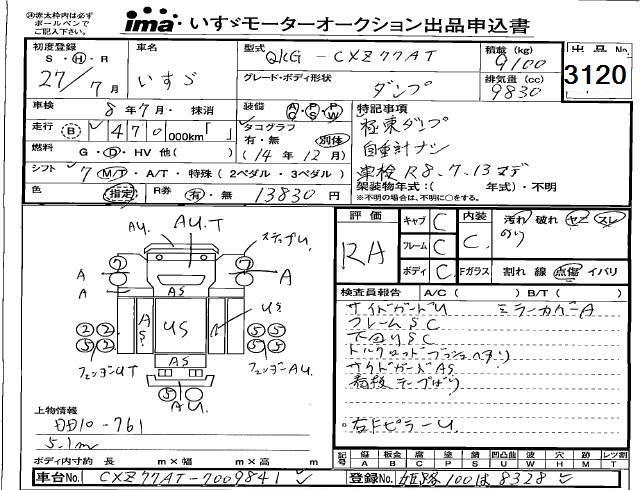 ※赤太枠内は必ずボールペンでご記入下さい。
ima いすゞモーターオークション出品申込書
初度登録
S・H・R
27/7月
車名
いすゞ
型式
QKG-CXZ77AT
グレード・ボディ形状
ダンプ
積載(kg)
9100
排気量(cc)
9830
出品No.
3120
車検 8年7月・抹消
走行 (B) 470 000km「 」
燃料 G・D・HV 他( )
シフト 7 M/T・A/T・特殊(2ペダル・3ペダル)
色 指定 R券 有・無 13830円
装備 AC・PS・PW
タコグラフ
有・無 別体
(14年12月)
特記事項
極東ダンプ
自重計ナシ
車検R8.7.13マデ
架装物年式:( 年式)・不明
※不明の場合は、不明に○をする。
評価
RA
キャブ C
フレーム C
ボディ C
内装 C
汚れ 破れ ヤニ スレ
のり
Fガラス 割れ 線 点傷 イバリ
検査員報告 A/C( ) B/T( )
サイドガードU ミラーカバーA
フレームSC
下回りSC
トルクロッドブッシュヘタリ
サイドガードAS
看板テープばり
・右FピラーU.
AU.
AU.T
ステップU.
7
7
A
A
A
AS
2 2
2 2
A
S
US
US
5 5
5 5
AS
フェンダーUT
フェンダーAU.
5
AU
上物情報
DD10-761
5.1m
ボディ内寸約 長 m×幅 m×高 m
記号
傷 板金 腐 塗装 錆 凹凸曲 波 穴 跡 レツ割
A B C P S U W H M T
車台No. CXZ77AT-7009841
登録No. 姫路100は8328